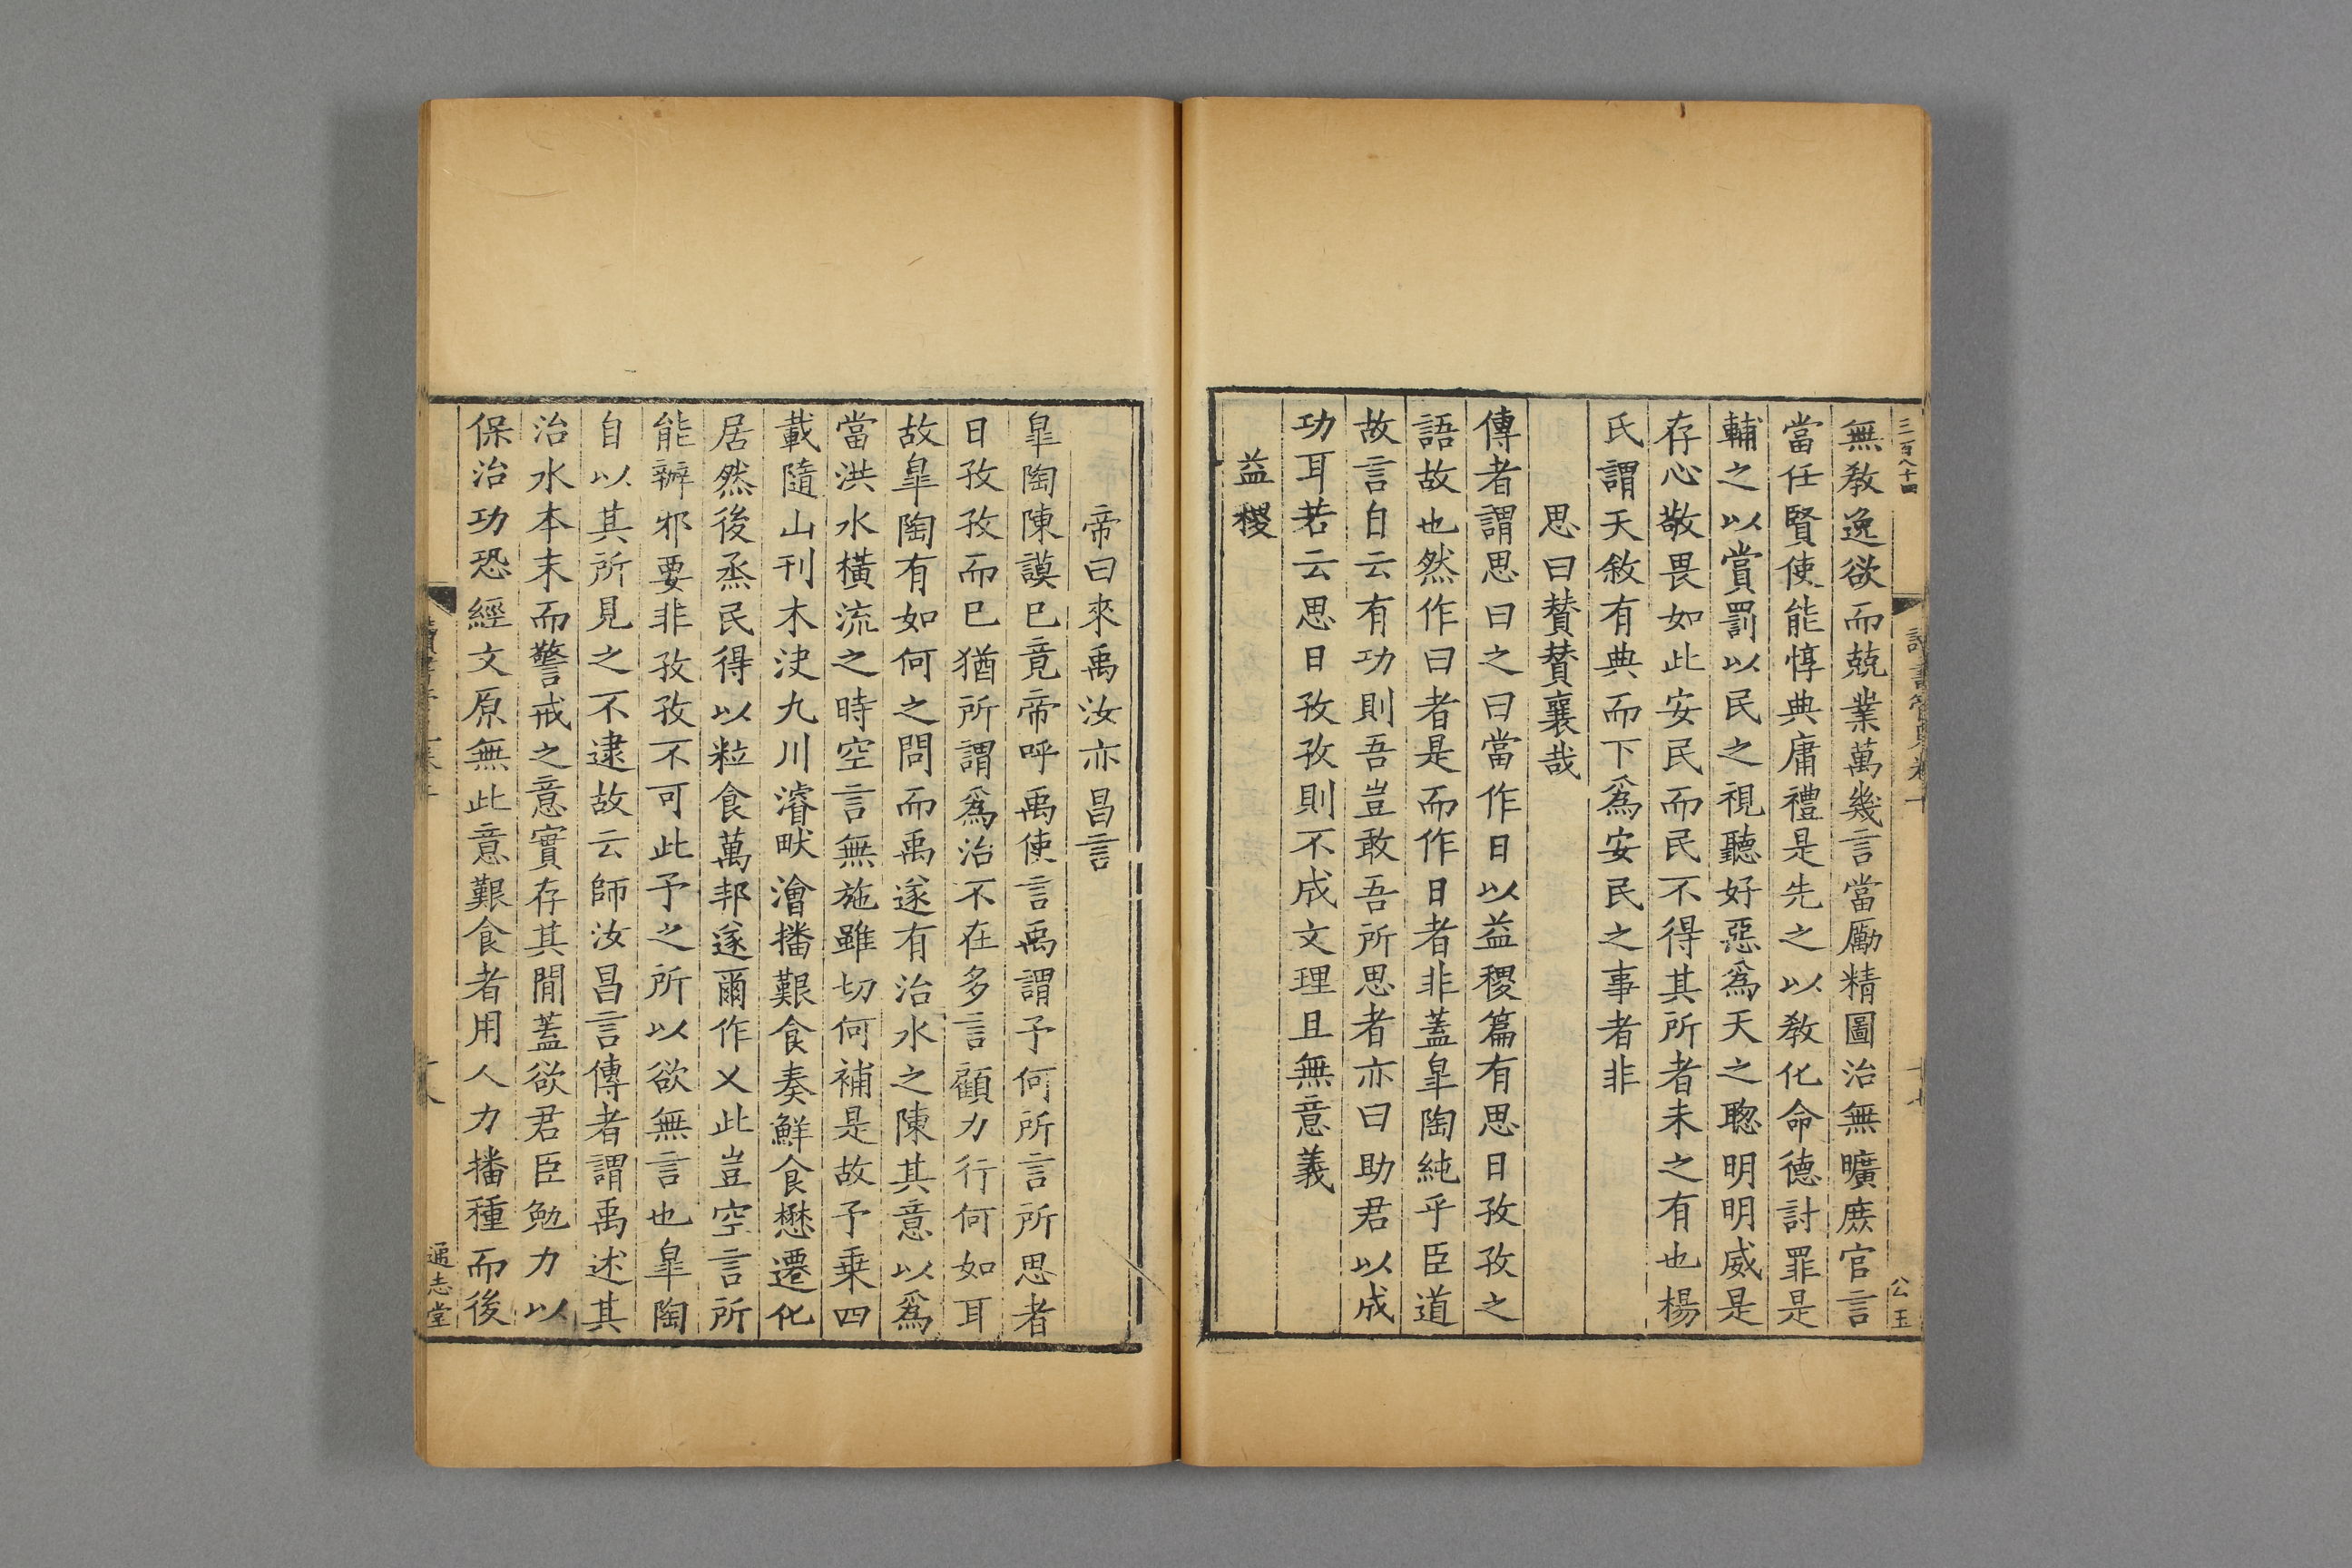 三百八十四
公玉
無敎逸欲而兢業萬幾言當勵精圖治無曠庶官言
當任賢使能惇典庸禮是先之以敎化命德討罪是
輔之以賞罰以民之視聽好惡爲天之聰明明威是
存心敬畏如此安民而民不得其所者未之有也楊
氏謂天敘有典而下爲安民之事者非
思曰贊贊襄哉
傳者謂思曰之曰當作日以益稷篇有思日孜孜之
語故也然作曰者是而作日者非蓋臯陶純乎臣道
故言自云有功則吾豈敢吾所思者亦曰助君以成
功耳若云思日孜孜則不成文理且無意義
益稷
帝曰來禹汝亦昌言
臯陶陳謨已竟帝呼禹使言禹謂予何所言所思者
日孜孜而已猶所謂爲治不在多言顧力行何如耳
故臯陶有如何之問而禹遂有治水之陳其意以爲
當洪水橫流之時空言無施雖切何補是故予乗四
載隨山刊木決九川濬畎澮播艱食奏鮮食懋遷化
居然後烝民得以粒食萬邦遂爾作乂此豈空言所
能辨邪要非孜孜不可此予之所以欲無言也臯陶
自以其所見之不逮故云師汝昌言傳者謂禹述其
治水本末而警戒之意實存其閒蓋欲君臣勉力以
保治功恐經文原無此意艱食者用人力播種而後
通志堂